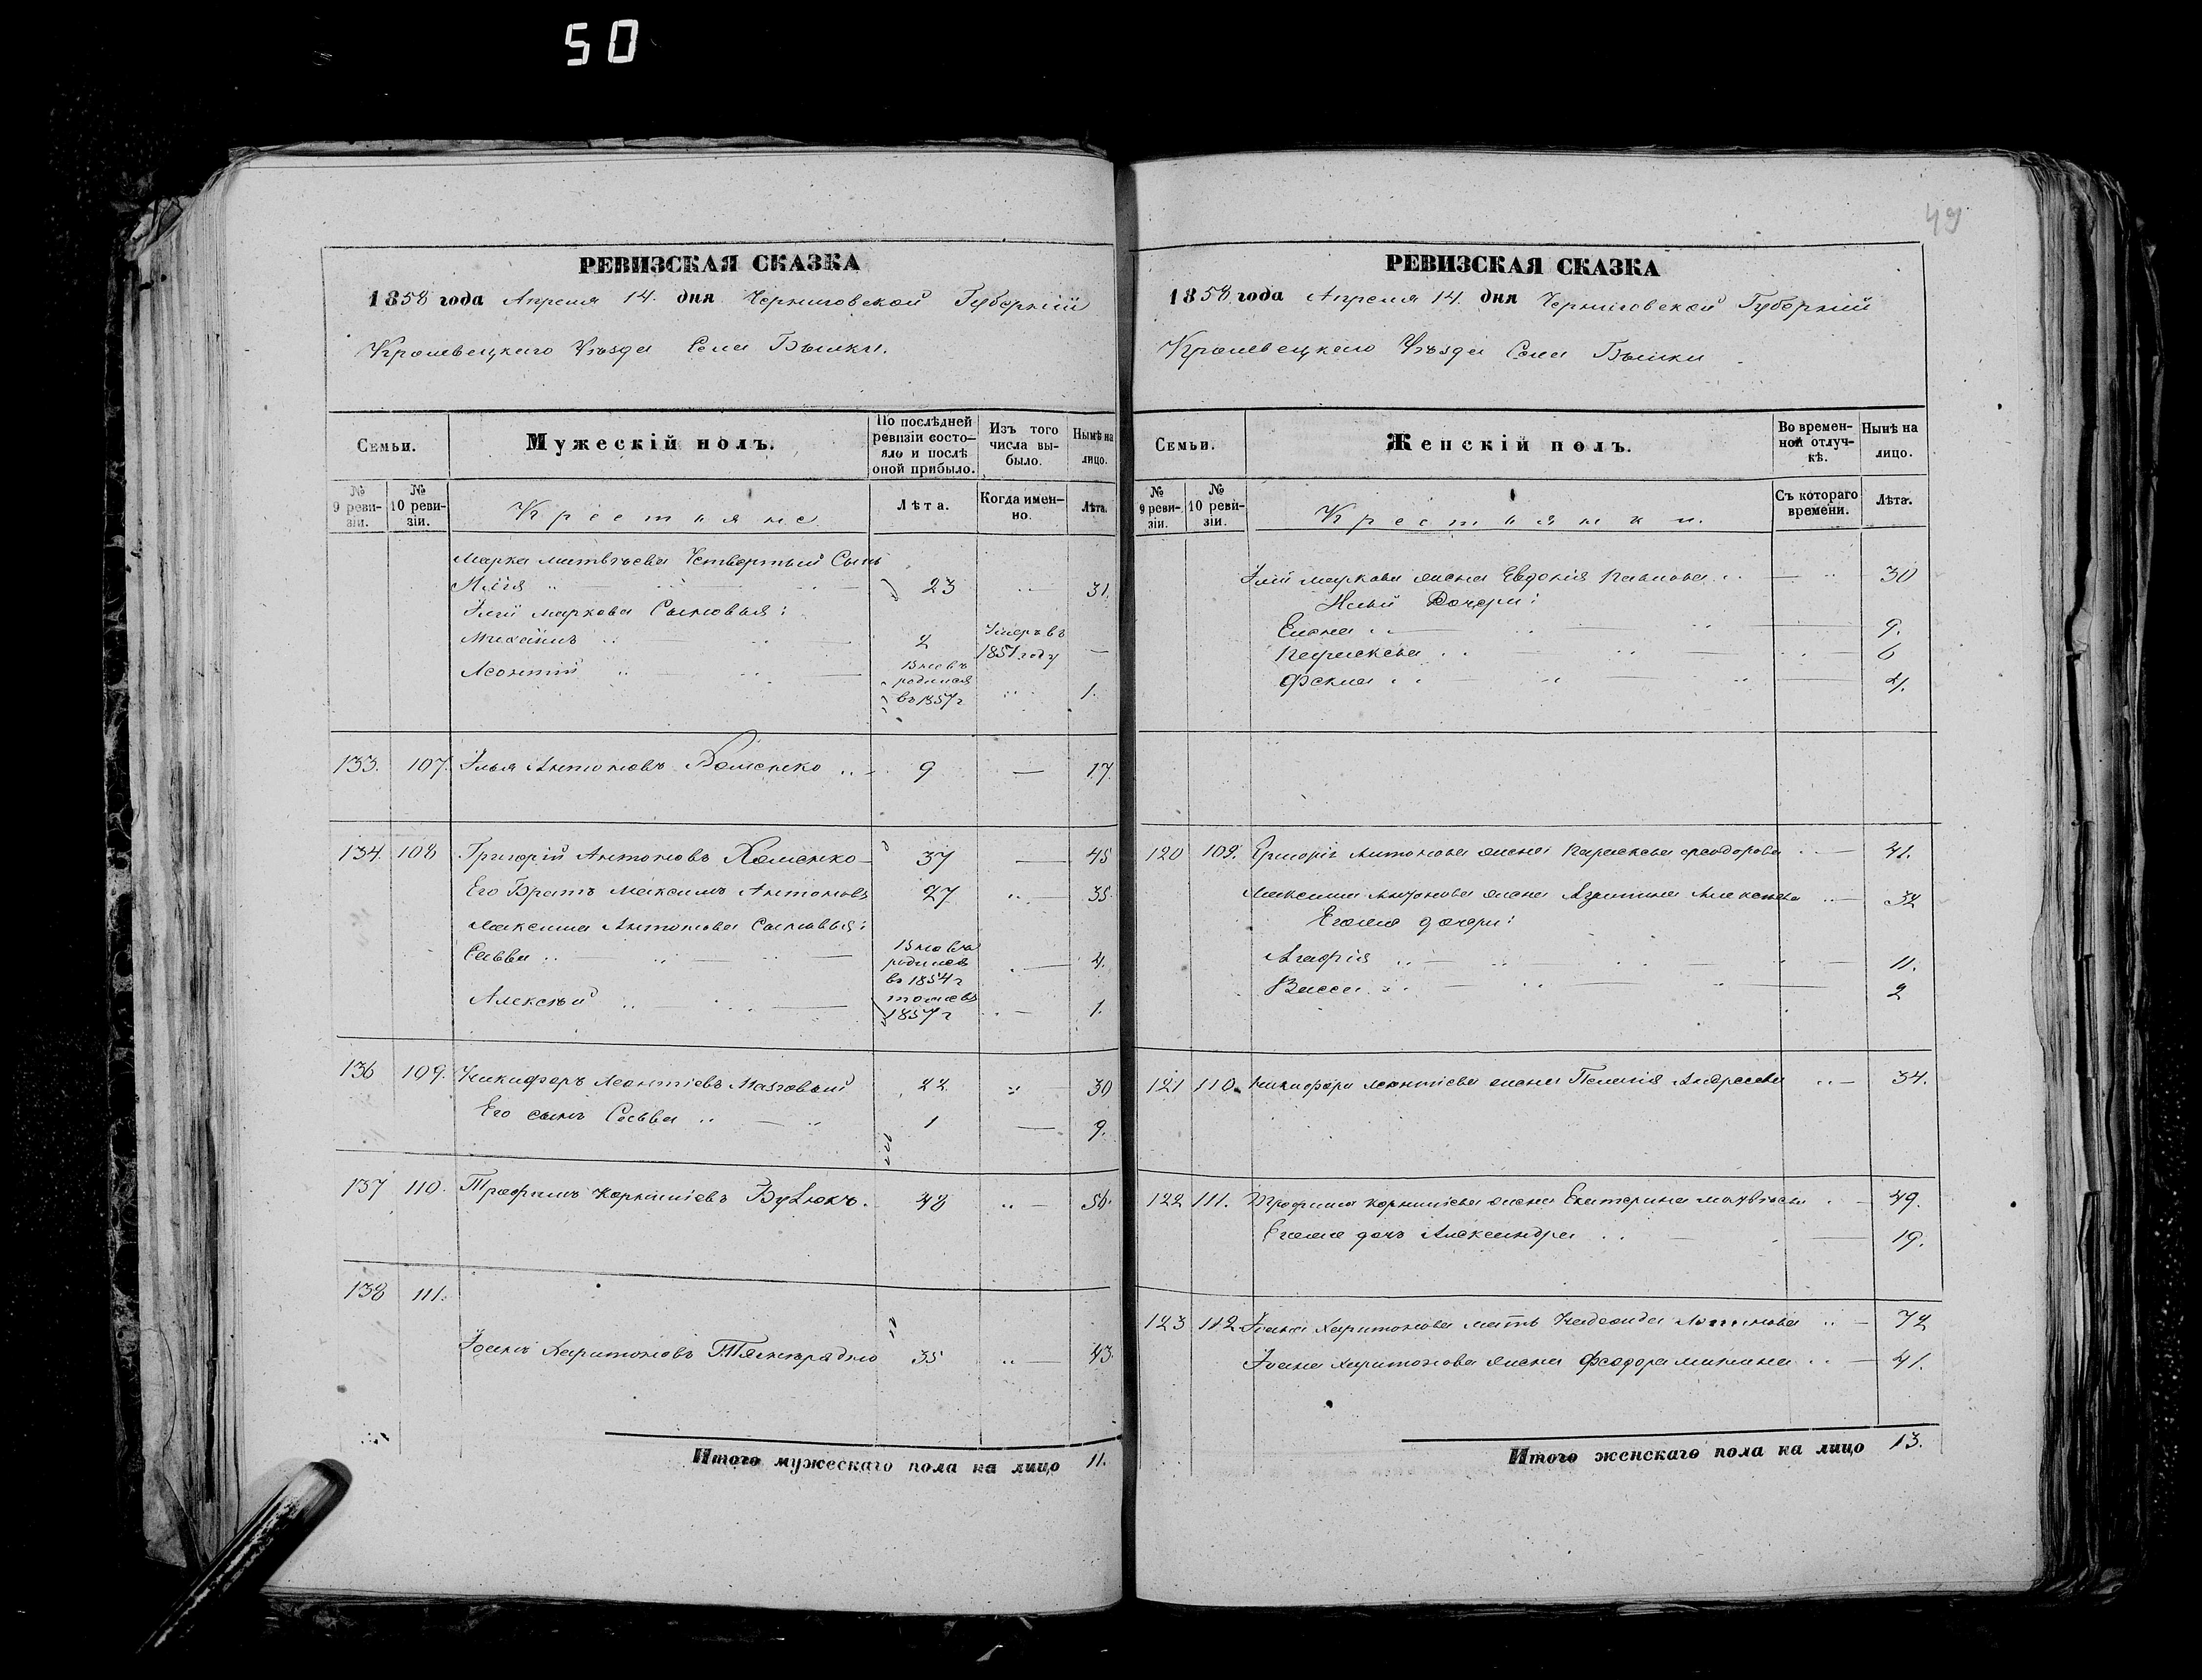 50
49
РЕВИЗСКАЯ СКАЗКА
1858 года Апреля 14. дня Черниговской Губерніи
Кролевецкаго Уѣзда Села Бѣлики.
Семьи.
Мужескій полъ.
По послѣдней ревизіи состо-
яло и послѣ
оной прибыло.
Изъ того
числа вы-
было.
Нынѣ на
лицо.
№
9 реви-
зіи.
№
10 реви-
зіи.
Крестьяне
Лѣта.
Когда имен-
но.
Лѣта.
Марка Матвѣева Четвертый Сынъ
Илія 23 31.
Иліи Маркова Сыновья:
Михаилъ 2 Умеръ въ 1851 году —
Леонтій Вновь родился въ 1857 г 1.
133. 107. Илья Антоновъ 9 — 17.
134. 108 Григорій Антоновъ 37 — 45
Его Братъ Максимъ Антоновъ 27 35.
Максима Антонова Сыновья:
Савва Вновь родился въ 1854 г 4.
Алексѣй тоже въ 1857 г 1.
136 109. Никифоръ Леонтіевъ 22 30
Его сынъ Савва 1 — 9.
137 110. Трофимъ Корниліевъ 48 56.
138 111.
Іоанъ Харитоновъ 35 43.
Итого мужескаго пола на лицо 11.
РЕВИЗСКАЯ СКАЗКА
1858 года Апреля 14. дня Черниговской Губерніи
Кролевецкаго Уѣзда Села Бѣлики
Семьи.
Женскій полъ.
Во времен-
ной отлуч-
кѣ.
Нынѣ на
лицо.
№
9 реви-
зіи.
№
10 реви-
зіи.
Крестьянки.
Съ котораго
времени.
Лѣта.
Иліи Маркова жена Евдокія Павлова 30
Дочери:
Елена 9.
Параскева 6
Фекла 4.
120 109. Григорія Антонова жена Параскева Феодорова 41.
Максима Антонова жена Алексѣева 32
Его дочери:
Агафія 11.
Васса 2
121 110. Никифора Леонтіева жена Пелагія Андреева 34.
122 111. Трофима Корниліева жена Екатерина Матвѣева 49.
Его дочь Александра 19.
123 112 Іоана Харитонова мать 72
Іоана Харитонова жена Феодора 41.
Итого женскаго пола на лицо 13.